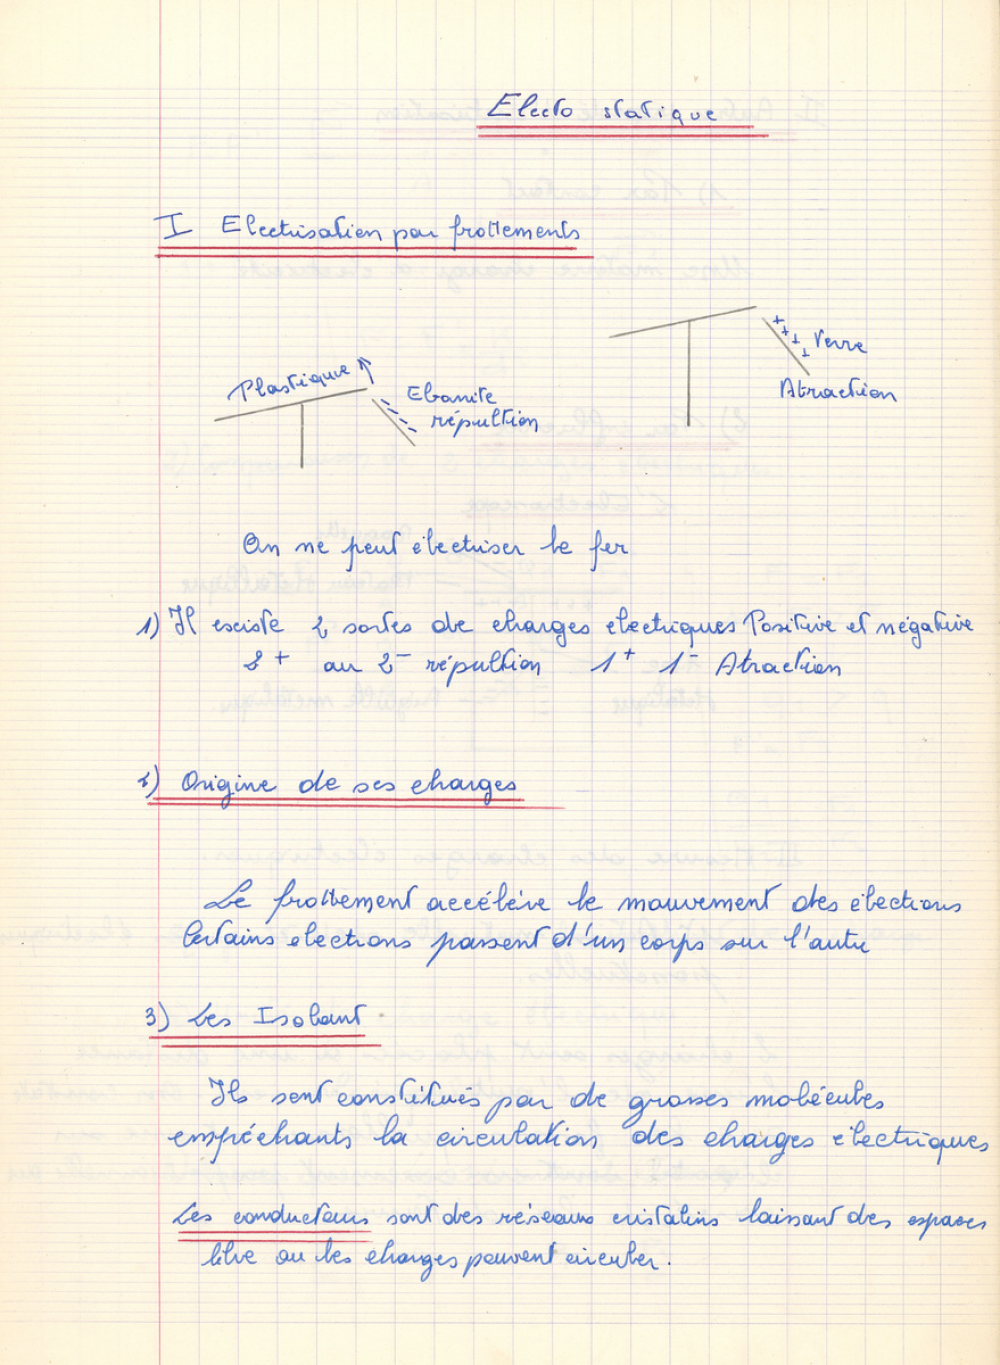 Electo statique
I Electrisation par frottements
Plastique
Ebonite
répultion
+ + + +
Verre
Atraction
On ne peut électriser le fer
1) Il esciste 2 sortes de charges electriques Positive et négative
2+ ou 2- répultion 1+ 1- Atraction
2) Origine de ses charges
Le frottement accélére le mouvement des électrons
Certains electrons passent d'un corps sur l'autre
3) Les Isolant
Ils sont constitués par de grosses molécules
empéchants la circulation des charges électriques
Les conducteurs sont des réseaux cristalins laissant des espaces
libre ou les charges peuvent circuler.